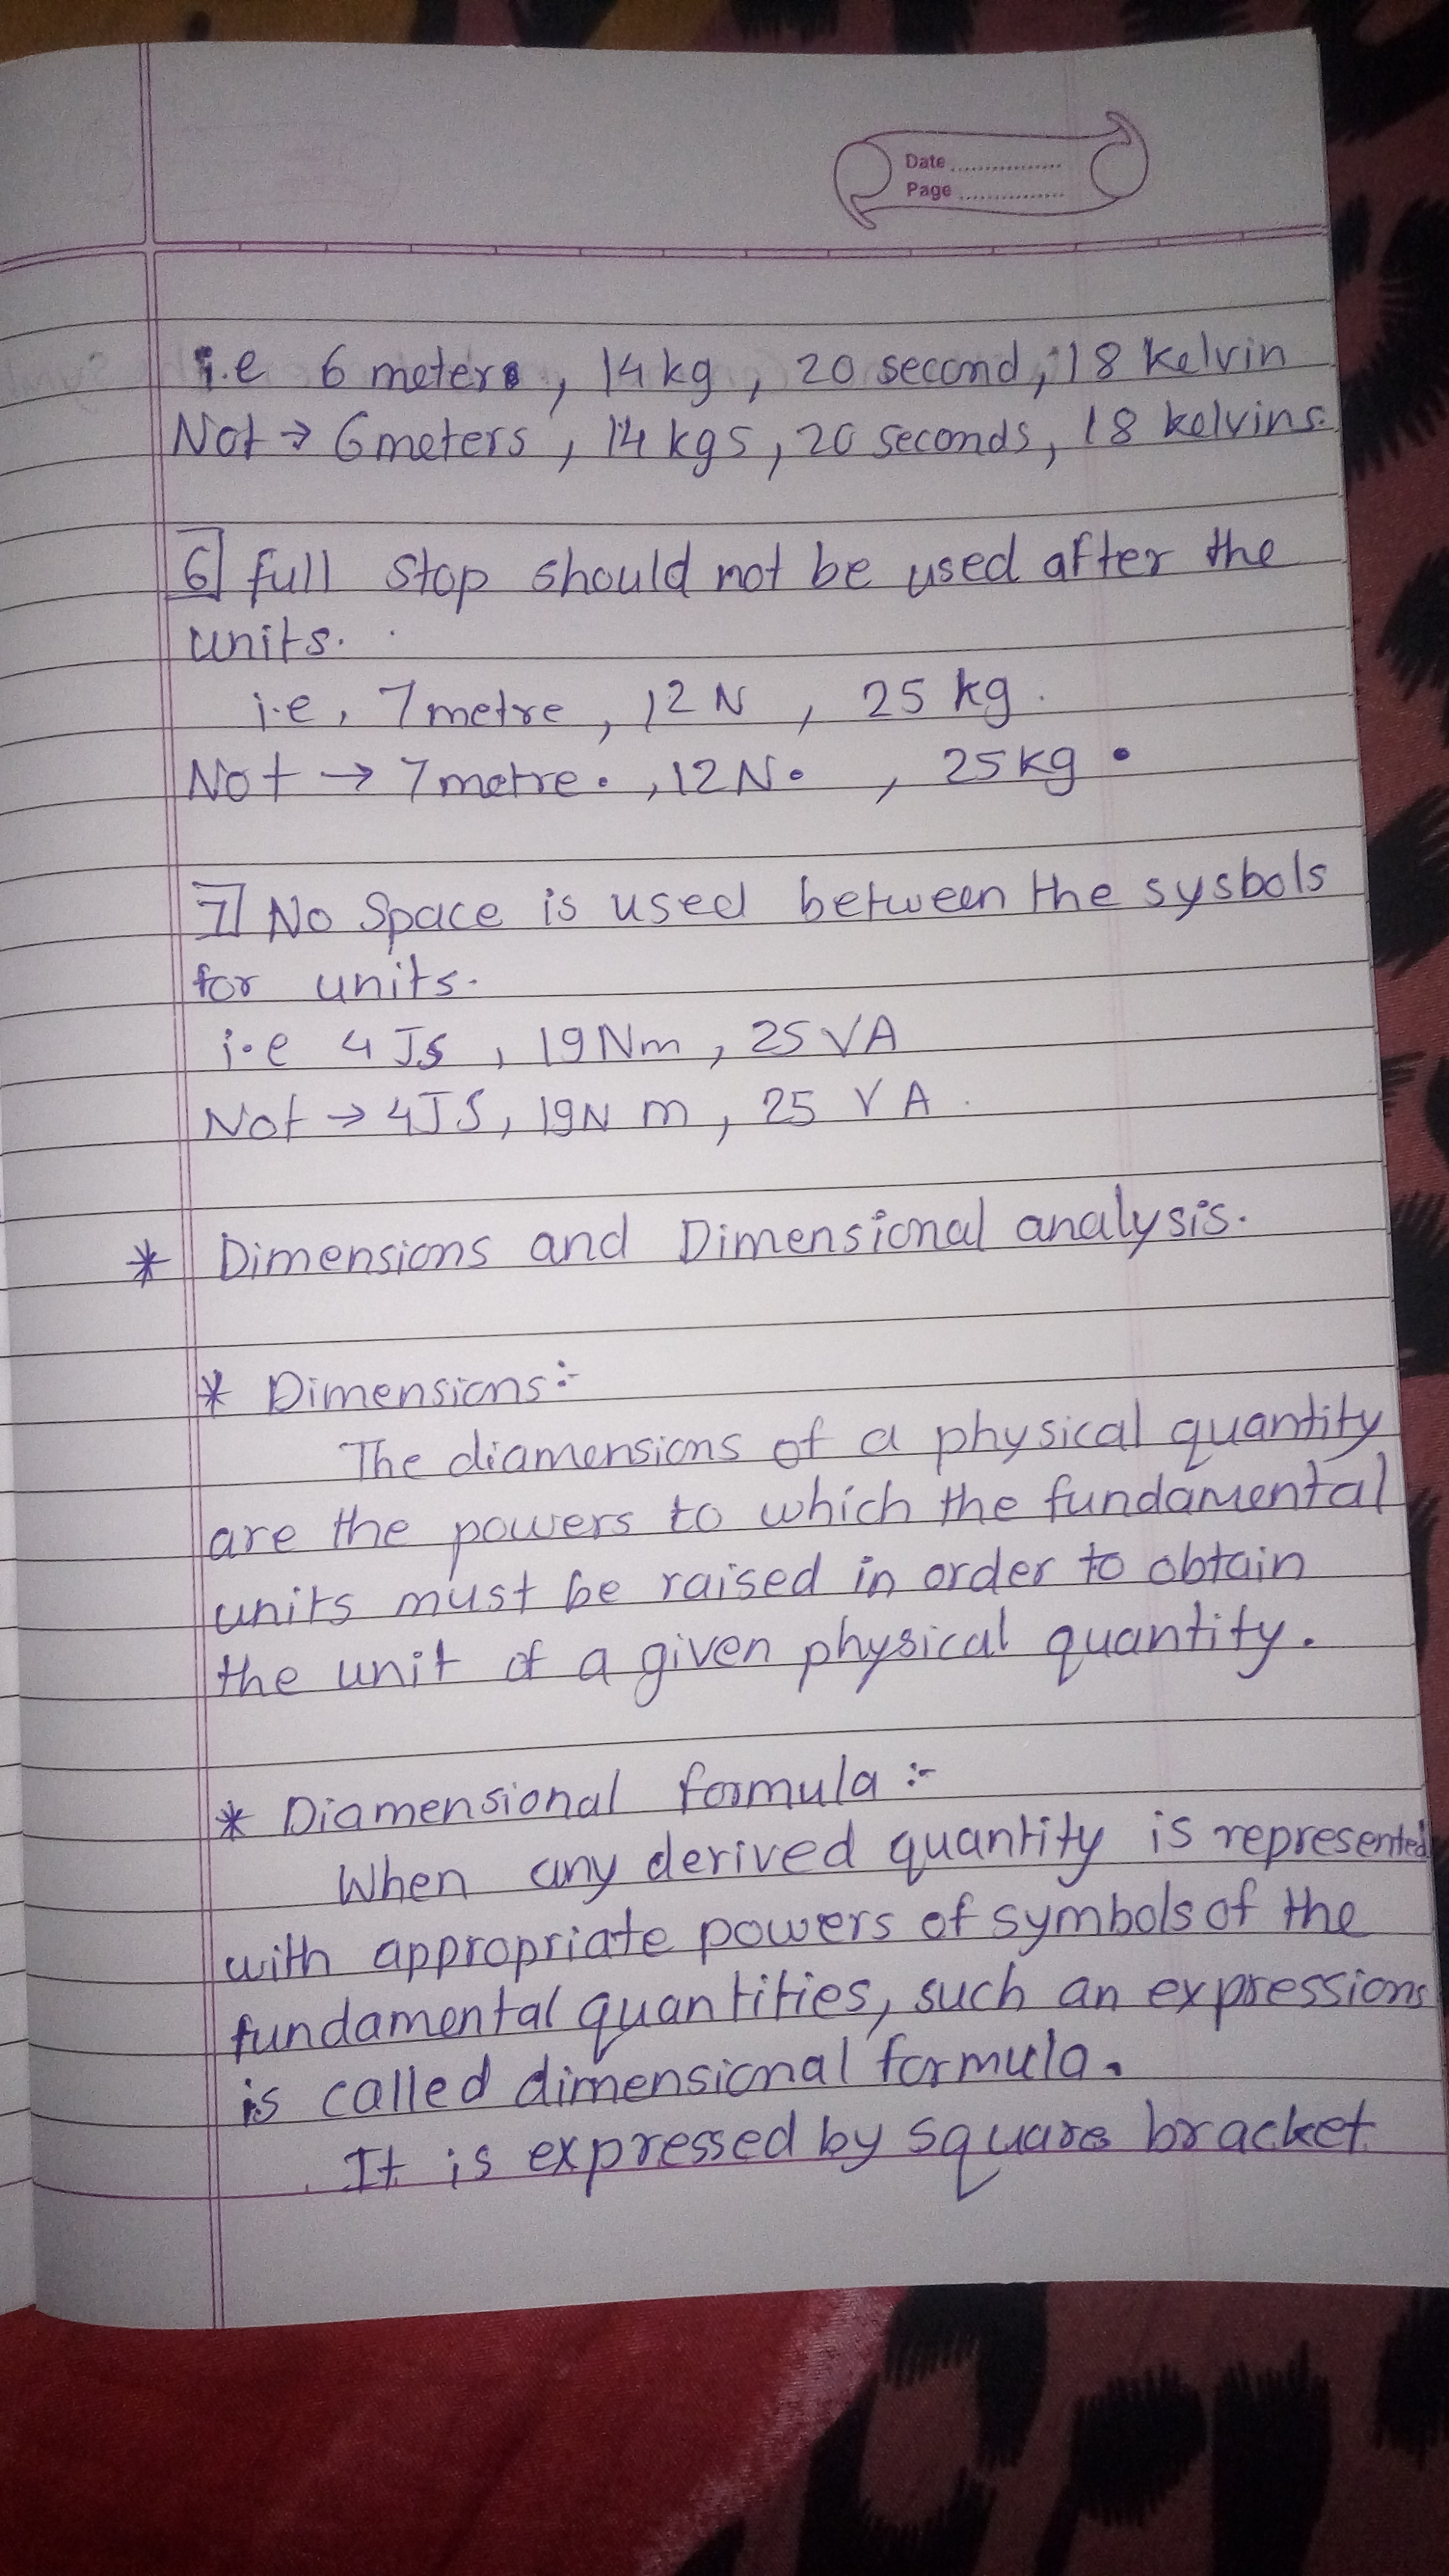 Date ...............
Page ...............
i.e 6 meter, 14 kg, 20 second, 18 Kelvin
Not → 6 meters, 14 kgs, 20 seconds, 18 kelvins.
6] full stop should not be used after the
units.
i.e, 7 metre, 12 N, 25 kg.
Not → 7 metre., 12 N., 25 kg.
7] No Space is used between the sysbols
for units.
i.e 4 Js, 19 Nm, 25 VA
Not → 4 J S, 19 N m, 25 V A.
* Dimensions and Dimensional analysis.
* Dimensions:-
The diamensions of a physical quantity
are the powers to which the fundamental
units must be raised in order to obtain
the unit of a given physical quantity.
* Diamensional formula :-
When any derived quantity is represented
with appropriate powers of symbols of the
fundamental quantities, such an expressions
is called dimensional formula.
It is expressed by square bracket